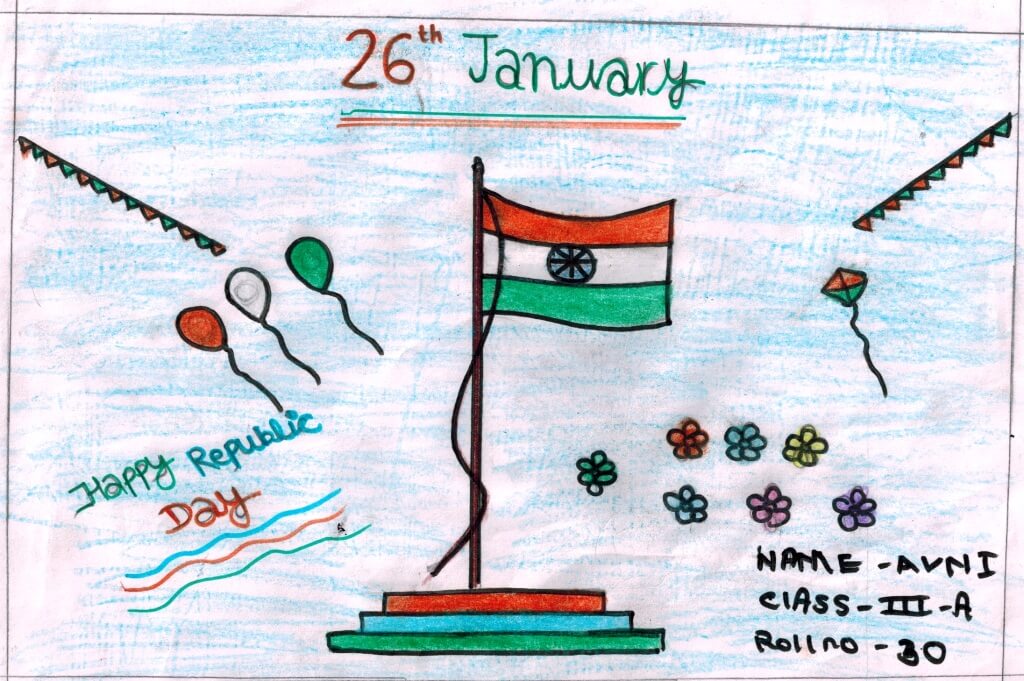 26th January
Happy Republic
Day
NAME - AVNI
ClASS - III - A
Rollno - 30